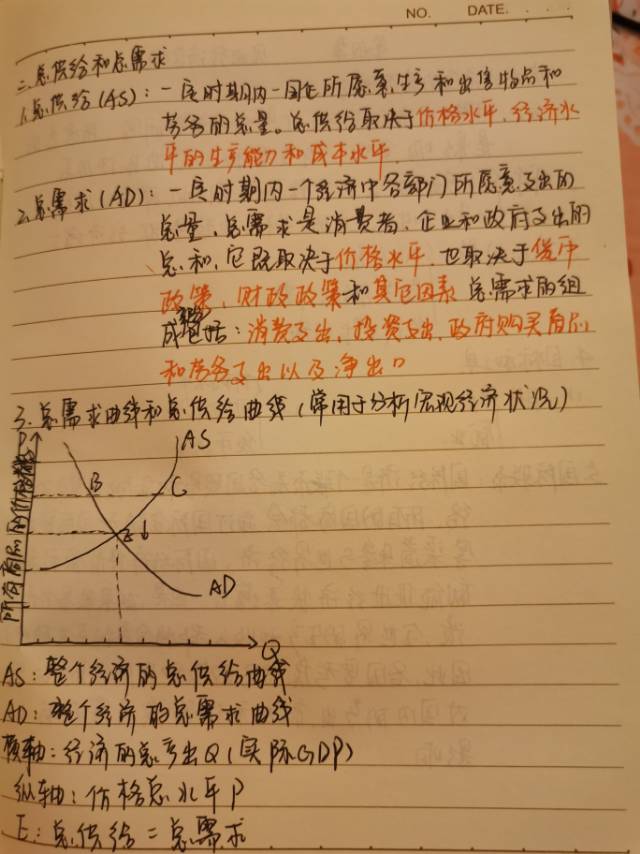 NO. DATE.
二.总供给和总需求
1.总供给(AS):一定时期内一国企业所愿意生产和出售物品和
劳务的总量。总供给取决于价格水平、经济水
平的生产能力和成本水平
2.总需求(AD):一定时期内一个经济中各部门所愿意支出的
总量,总需求是消费者、企业和政府支出的
总和,它既取决于价格水平,也取决于货币
政策、财政政策和其它因素 总需求的组
成包括:消费支出、投资支出、政府购买商品
和劳务支出以及净出口
3.总需求曲线和总供给曲线(常用于分析宏观经济状况)
P
AS
B
C
E
AD
Q
所有商品的价格
AS:整个经济的总供给曲线
AD:整个经济的总需求曲线
横轴:经济的总产出Q(实际GDP)
纵轴:价格总水平P
E:总供给=总需求